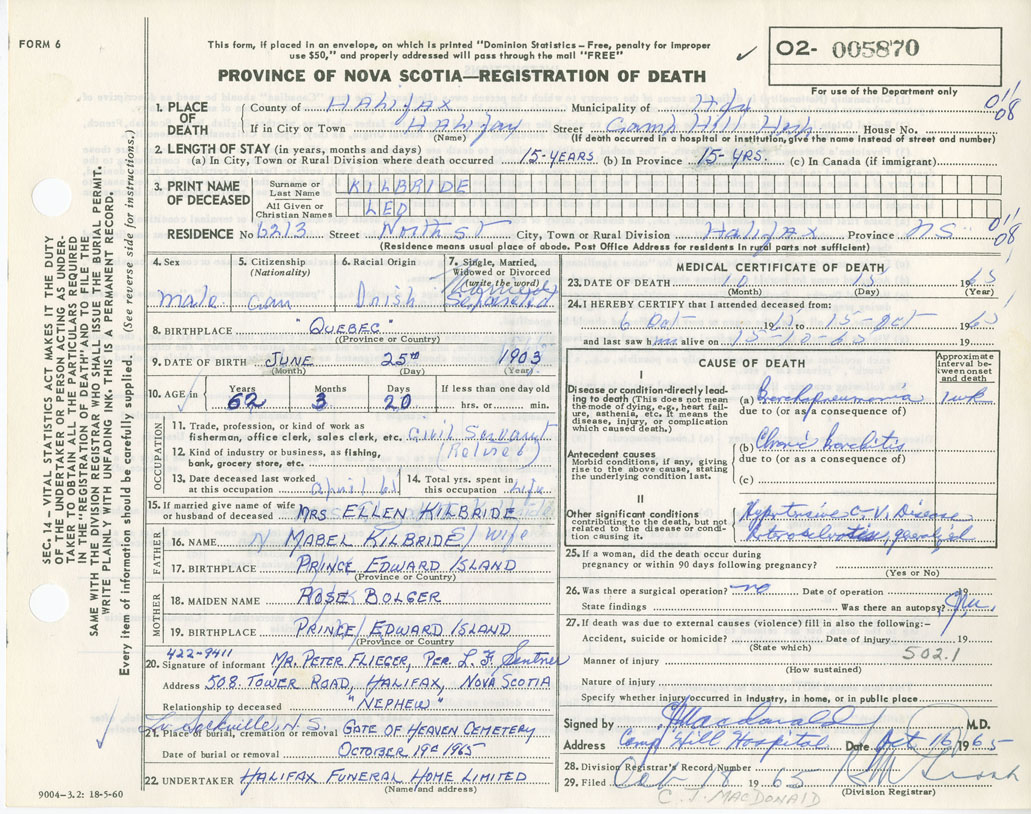 FORM 6
This form, if placed in an envelope, on which is printed "Dominion Statistics—Free, penalty for improper
use $50," and properly addressed will pass through the mail "FREE"
✓ O2- 005870
PROVINCE OF NOVA SCOTIA—REGISTRATION OF DEATH
For use of the Department only
1. PLACE OF DEATH
County of Halifax Municipality of Hfx
If in City or Town Halifax Street Camp Hill Hosp House No.
(Name) (If death occurred in a hospital or institution, give the name instead of street and number)
01/08
2. LENGTH OF STAY (in years, months and days)
(a) In City, Town or Rural Division where death occurred 15-YEARS (b) In Province 15-YRS. (c) In Canada (if immigrant)
3. PRINT NAME OF DECEASED
Surname or Last Name KILBRIDE
All Given or Christian Names LEO
RESIDENCE No 6213 Street North st City, Town or Rural Division Halifax Province NS
(Residence means usual place of abode. Post Office Address for residents in rural parts not sufficient)
01/08
4. Sex
male
5. Citizenship
(Nationality)
Can
6. Racial Origin
Irish
7. Single, Married,
Widowed or Divorced
(write the word)
Separated
8. BIRTHPLACE "QUEBEC"
(Province or Country)
9. DATE OF BIRTH JUNE 25TH 1903
(Month) (Day) (Year)
10. AGE in
Years 62
Months 3
Days 20
If less than one day old
hrs. or min.
OCCUPATION
11. Trade, profession, or kind of work as
fisherman, office clerk, sales clerk, etc. Civil Servant
12. Kind of industry or business, as fishing, (Retired)
bank, grocery store, etc.
13. Date deceased last worked
at this occupation April 61
14. Total yrs. spent in
this occupation life
15. If married give name of wife
or husband of deceased MRS ELLEN KILBRIDE
FATHER
16. NAME MABEL KILBRIDE / wife
17. BIRTHPLACE PRINCE EDWARD ISLAND
(Province or Country)
MOTHER
18. MAIDEN NAME ROSE BOLGER
19. BIRTHPLACE PRINCE EDWARD ISLAND
(Province or Country)
422-9411
20. Signature of informant MR. PETER FLIEGER, PER L.F. Sentner
Address 508. TOWER ROAD, HALIFAX, NOVA SCOTIA
Relationship to deceased "NEPHEW"
Sackville N.S.
21. Place of burial, cremation or removal GATE OF HEAVEN CEMETERY
Date of burial or removal OCTOBER 19th 1965
22. UNDERTAKER HALIFAX FUNERAL HOME LIMITED
(Name and address)
9004-3.2: 18-5-60
MEDICAL CERTIFICATE OF DEATH
23. DATE OF DEATH 10 15 1965
(Month) (Day) (Year)
24. I HEREBY CERTIFY that I attended deceased from:
6 Oct 19 to 15-Oct 1965
and last saw him alive on 15-10-65 19
CAUSE OF DEATH
Approximate
interval between
onset
and death
I
Disease or condition directly lead-
ing to death (This does not mean
the mode of dying, e.g., heart fail-
ure, asthenia, etc. It means the
disease, injury, or complication
which caused death.)
(a) Bronchopneumonia 1 wk
due to (or as a consequence of)
Antecedent causes
Morbid conditions, if any, giving
rise to the above cause, stating
the underlying condition last.
(b) Chronic bronchitis
due to (or as a consequence of)
(c)
II
Other significant conditions
contributing to the death, but not
related to the disease or condi-
tion causing it.
Hypertensive C-V. Disease
25. If a woman, did the death occur during
pregnancy or within 90 days following pregnancy?
(Yes or No)
26. Was there a surgical operation? no Date of operation 19
State findings Was there an autopsy?
27. If death was due to external causes (violence) fill in also the following:—
Accident, suicide or homicide? Date of injury 19
(State which) 502.1
Manner of injury
(How sustained)
Nature of injury
Specify whether injury occurred in industry, in home, or in public place
Signed by Macdonald M.D.
Address Camp Hill Hospital Date Oct 16 1965
28. Division Registrar's Record Number
29. Filed Oct 18 1965
(Division Registrar)
C. J. MACDONALD
SEC. 14 – VITAL STATISTICS ACT MAKES IT THE DUTY
OF THE UNDERTAKER OR PERSON ACTING AS UNDER-
TAKER TO OBTAIN ALL THE PARTICULARS REQUIRED
IN THE "REGISTRATION OF DEATH" AND TO FILE THE
SAME WITH THE DIVISION REGISTRAR WHO SHALL ISSUE THE BURIAL PERMIT.
WRITE PLAINLY WITH UNFADING INK. THIS IS A PERMANENT RECORD.
Every item of information should be carefully supplied. (See reverse side for instructions.)